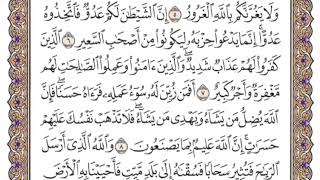 وَلَا يَغُرَّنَّكُم بِاللَّهِ الْغَرُورُ ٥ إِنَّ الشَّيْطَانَ لَكُمْ عَدُوٌّ فَاتَّخِذُوهُ
عَدُوًّا إِنَّمَا يَدْعُو حِزْبَهُ لِيَكُونُوا مِنْ أَصْحَابِ السَّعِيرِ ٦ الَّذِينَ
كَفَرُوا لَهُمْ عَذَابٌ شَدِيدٌ وَالَّذِينَ ءَامَنُوا وَعَمِلُوا الصَّالِحَاتِ لَهُم
مَّغْفِرَةٌ وَأَجْرٌ كَبِيرٌ ٧ أَفَمَن زُيِّنَ لَهُ سُوءُ عَمَلِهِ فَرَءَاهُ حَسَنًا فَإِنَّ
اللَّهَ يُضِلُّ مَن يَشَاءُ وَيَهْدِي مَن يَشَاءُ فَلَا تَذْهَبْ نَفْسُكَ عَلَيْهِمْ
حَسَرَاتٍ إِنَّ اللَّهَ عَلِيمٌ بِمَا يَصْنَعُونَ ٨ وَاللَّهُ الَّذِي أَرْسَلَ
الرِّيَاحَ فَتُثِيرُ سَحَابًا فَسُقْنَاهُ إِلَى بَلَدٍ مَّيِّتٍ فَأَحْيَيْنَا بِهِ الْأَرْضَ